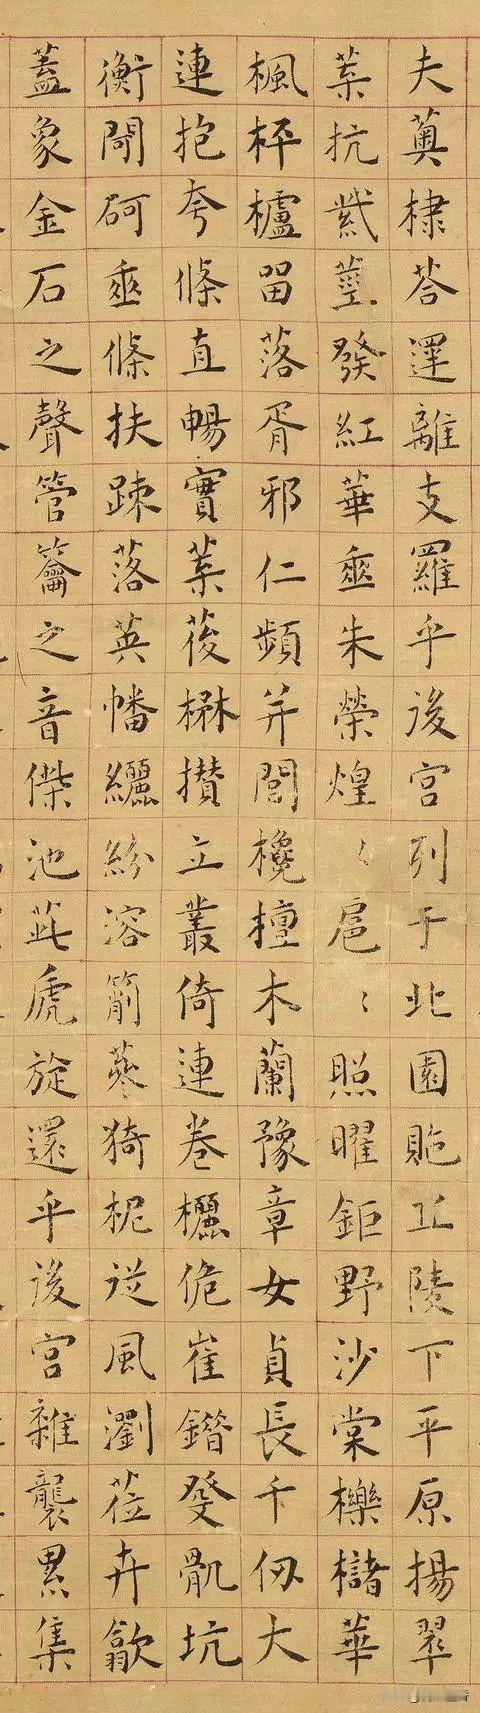 夫薁棣荅遝離支羅乎後宮列于北園貤丘陵下平原揚翠
葉抗紫莖發紅華垂朱榮煌〻扈〻照曜鉅野沙棠櫟櫧華
楓枰櫨留落胥邪仁頻并閭欃檀木蘭豫章女貞長千仞大
連抱夸條直暢實葉葰楙攢立叢倚連卷欐佹崔錯癹骫坑
衡閜砢垂條扶疎落英幡纚紛溶箾蔘猗柅從風瀏莅卉歙
蓋象金石之聲管籥之音偨池茈虒旋還乎後宮雜襲累集